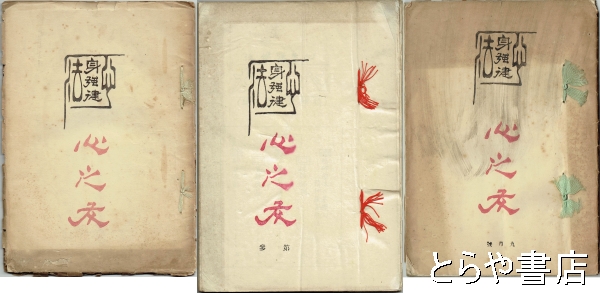 心身強健法
心之友
心身強健法
心之友
第參
心身強健法
心之友
とらや書店